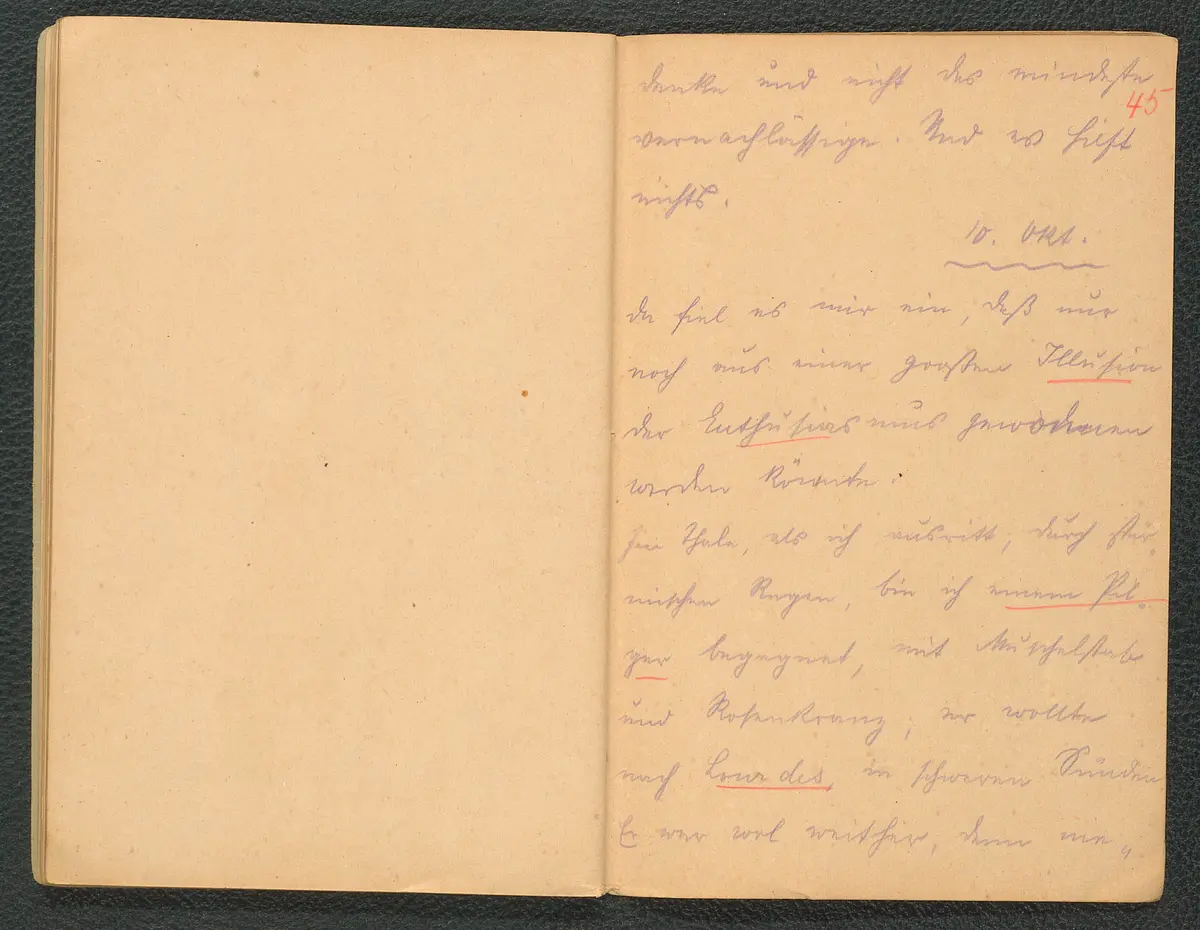 denke und nicht das mindeste
45
vernachlässige. Und es hilft
nichts.
10. Okt.
da fiel es mir ein, daß nur
noch aus einer großen Illusion
der Enthusiasmus gewonnen
werden könnte:
Im Thale, als ich ausritt, durch stür-
mischen Regen, bin ich einem Pil-
ger begegnet, mit Muschelstab
und Rosenkranz; er wollte
nach Lourdes, in schweren Sünden
Er war wol weither, denn nie-